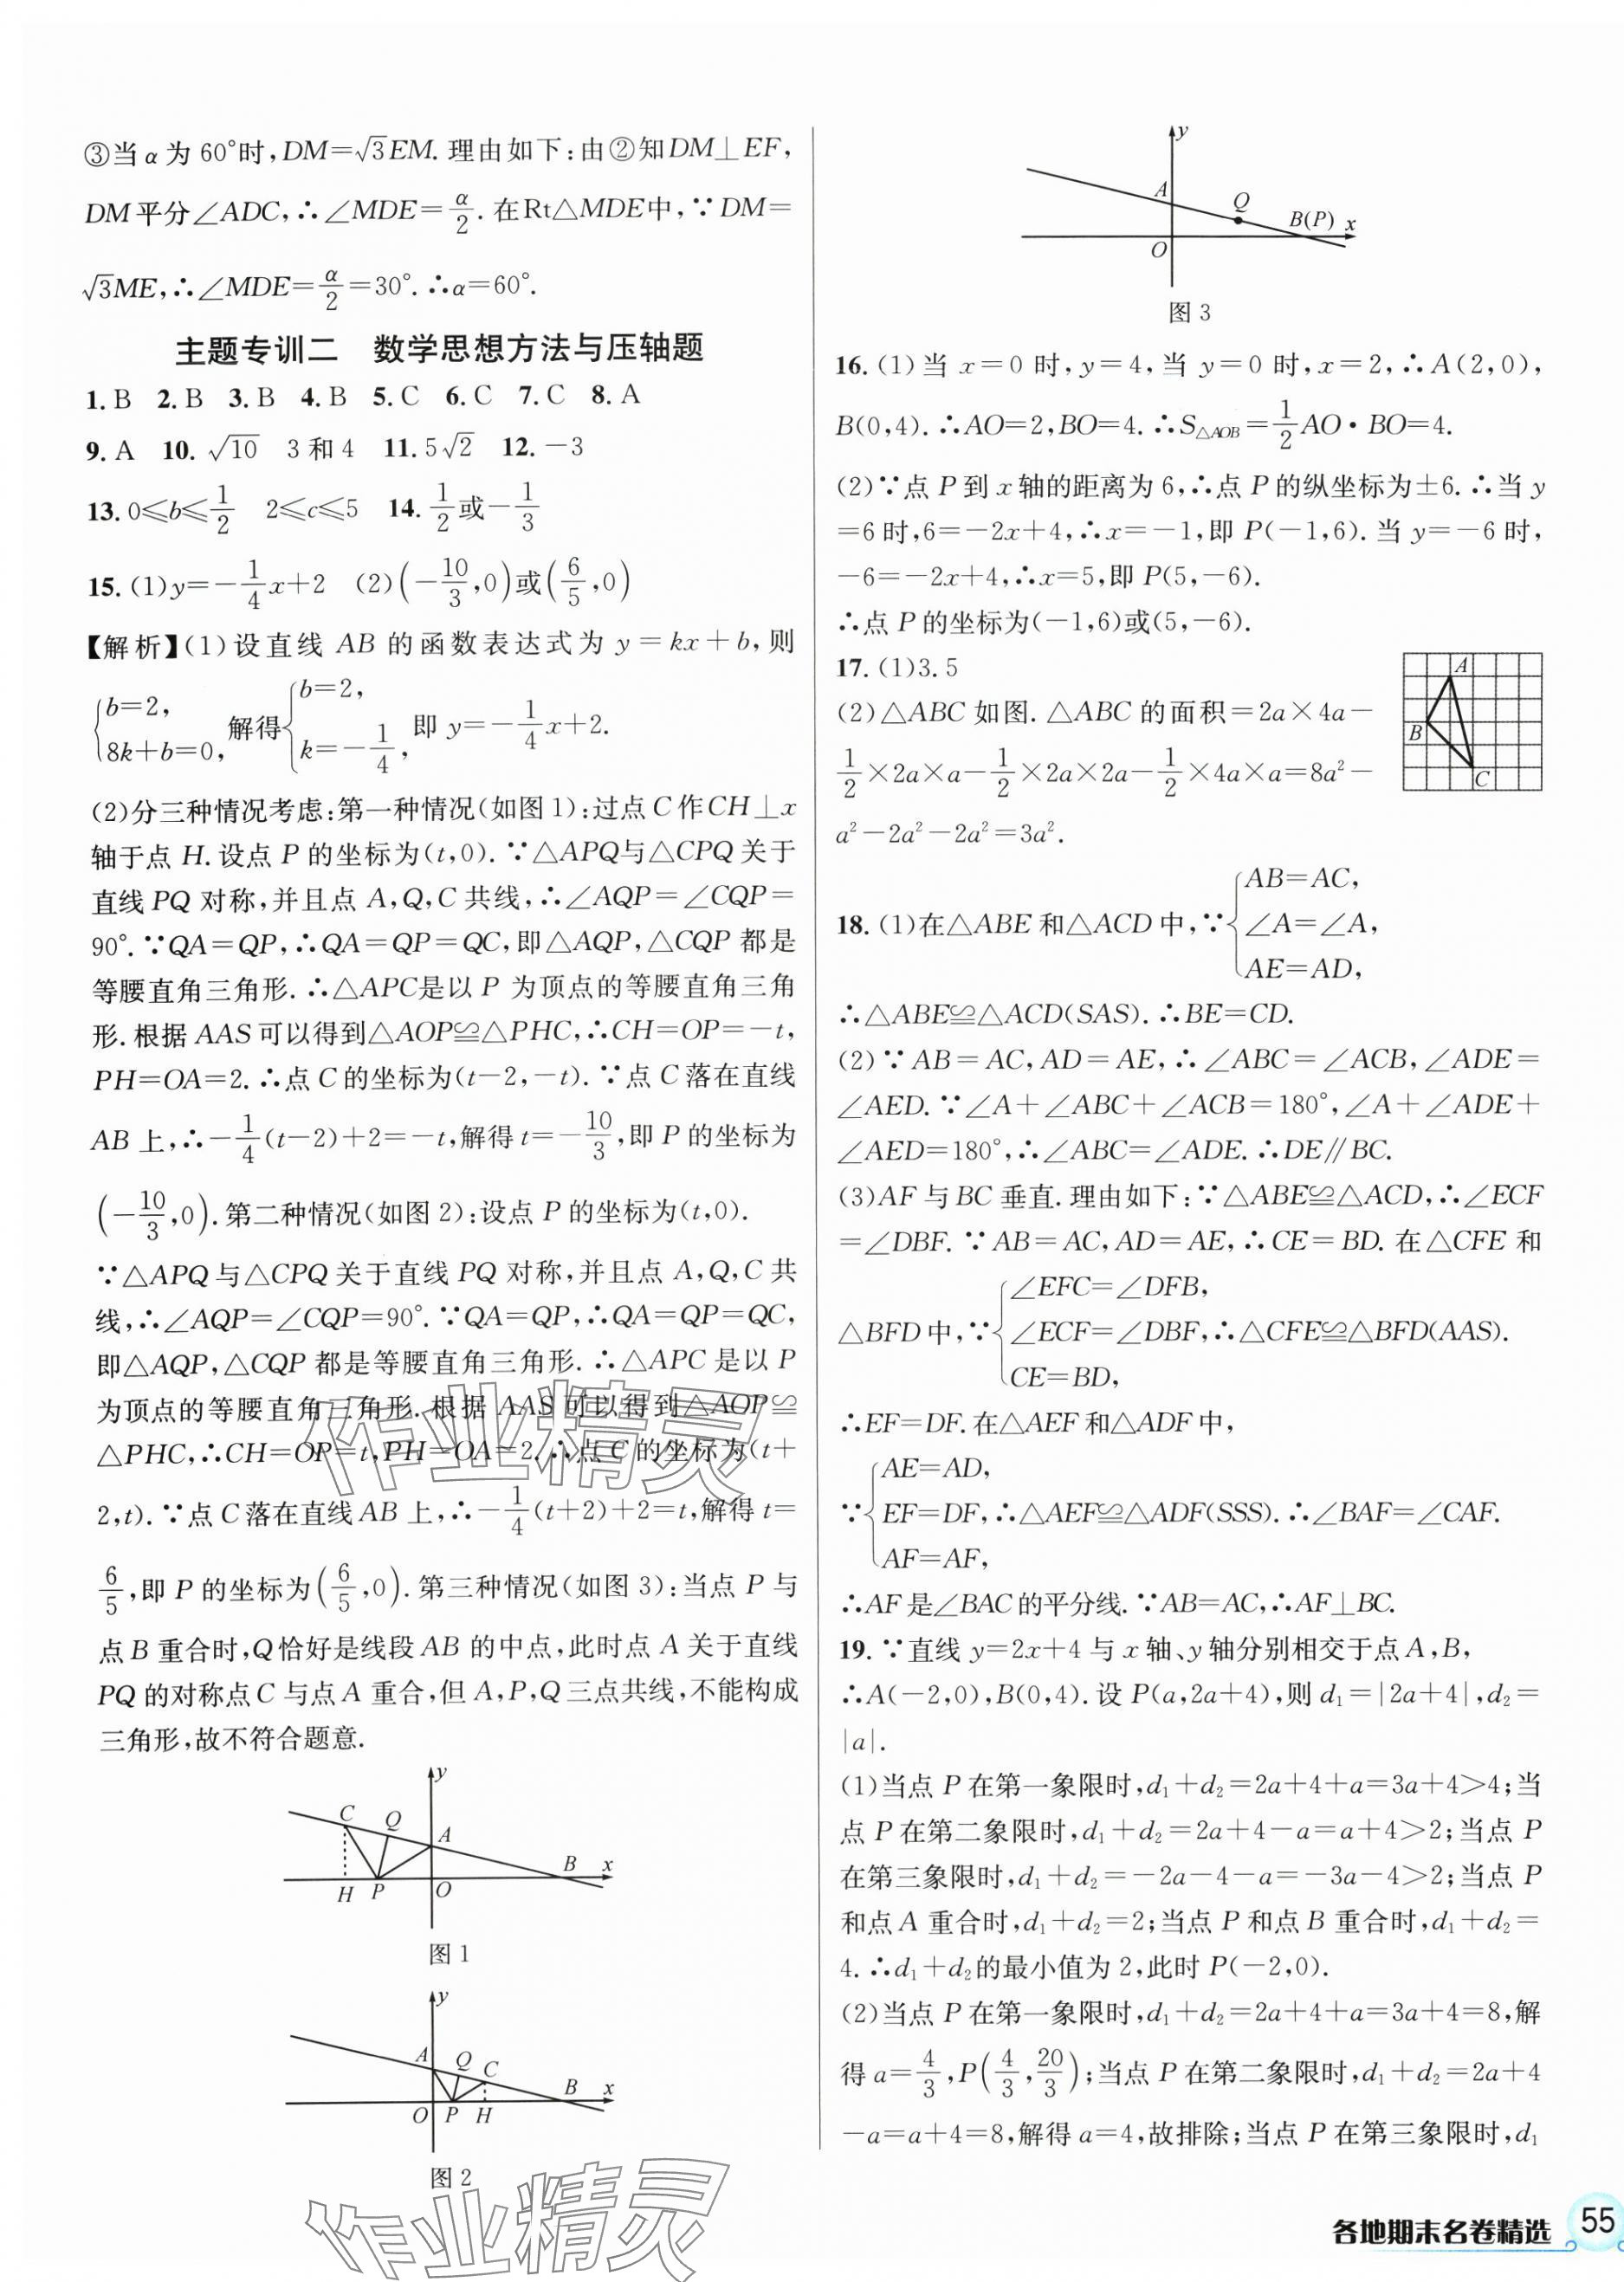 ③当α为60°时,DM=√3EM.理由如下:由②知DM⊥EF,
DM平分∠ADC,∴∠MDE=α/2.在Rt△MDE中,∵DM=
√3ME,∴∠MDE=α/2=30°.∴α=60°.
主题专训二 数学思想方法与压轴题
1.B 2.B 3.B 4.B 5.C 6.C 7.C 8.A
9.A 10.√10 3和4 11.5√2 12.-3
13.0≤b≤1/2 2≤c≤5 14.1/2或-1/3
15.(1)y=-1/4x+2 (2)(-10/3,0)或(6/5,0)
【解析】(1)设直线AB的函数表达式为y=kx+b,则
{b=2, 8k+b=0, 解得{b=2, k=-1/4, 即y=-1/4x+2.
(2)分三种情况考虑:第一种情况(如图1):过点C作CH⊥x
轴于点H.设点P的坐标为(t,0).∵△APQ与△CPQ关于
直线PQ对称,并且点A,Q,C共线,∴∠AQP=∠CQP=
90°.∵QA=QP,∴QA=QP=QC,即△AQP,△CQP都是
等腰直角三角形.∴△APC是以P为顶点的等腰直角三角
形.根据AAS可以得到△AOP≌△PHC,∴CH=OP=-t,
PH=OA=2.∴点C的坐标为(t-2,-t).∵点C落在直线
AB上,∴-1/4(t-2)+2=-t,解得t=-10/3,即P的坐标为
(-10/3,0).第二种情况(如图2):设点P的坐标为(t,0).
∵△APQ与△CPQ关于直线PQ对称,并且点A,Q,C共
线,∴∠AQP=∠CQP=90°.∵QA=QP,∴QA=QP=QC,
即△AQP,△CQP都是等腰直角三角形.∴△APC是以P
为顶点的等腰直角三角形.根据AAS可以得到△AOP≌
△PHC,∴CH=OP=t,PH=OA=2.∴点C的坐标为(t+
2,t).∵点C落在直线AB上,∴-1/4(t+2)+2=t,解得t=
6/5,即P的坐标为(6/5,0).第三种情况(如图3):当点P与
点B重合时,Q恰好是线段AB的中点,此时点A关于直线
PQ的对称点C与点A重合,但A,P,Q三点共线,不能构成
三角形,故不符合题意.
y
C Q A B x
H P O
图1
y
A Q C B x
O P H
图2
y
A Q B(P) x
O
图3
16.(1)当x=0时,y=4,当y=0时,x=2,∴A(2,0),
B(0,4).∴AO=2,BO=4.∴S△AOB=1/2AO·BO=4.
(2)∵点P到x轴的距离为6,∴点P的纵坐标为±6.∴当y
=6时,6=-2x+4,∴x=-1,即P(-1,6).当y=-6时,
-6=-2x+4,∴x=5,即P(5,-6).
∴点P的坐标为(-1,6)或(5,-6).
17.(1)3.5
(2)△ABC如图.△ABC的面积=2a×4a-
1/2×2a×a-1/2×2a×2a-1/2×4a×a=8a²-
a²-2a²-2a²=3a².
A
B
C
18.(1)在△ABE和△ACD中,∵{AB=AC, ∠A=∠A, AE=AD,
∴△ABE≌△ACD(SAS).∴BE=CD.
(2)∵AB=AC,AD=AE,∴∠ABC=∠ACB,∠ADE=
∠AED.∵∠A+∠ABC+∠ACB=180°,∠A+∠ADE+
∠AED=180°,∴∠ABC=∠ADE.∴DE∥BC.
(3)AF与BC垂直.理由如下:∵△ABE≌△ACD,∴∠ECF
=∠DBF.∵AB=AC,AD=AE,∴CE=BD.在△CFE和
△BFD中,∵{∠EFC=∠DFB, ∠ECF=∠DBF, CE=BD, ∴△CFE≌△BFD(AAS).
∴EF=DF.在△AEF和△ADF中,
∵{AE=AD, EF=DF, AF=AF, ∴△AEF≌△ADF(SSS).∴∠BAF=∠CAF.
∴AF是∠BAC的平分线.∵AB=AC,∴AF⊥BC.
19.∵直线y=2x+4与x轴、y轴分别相交于点A,B,
∴A(-2,0),B(0,4).设P(a,2a+4),则d₁=|2a+4|,d₂=
|a|.
(1)当点P在第一象限时,d₁+d₂=2a+4+a=3a+4>4;当
点P在第二象限时,d₁+d₂=2a+4-a=a+4>2;当点P
在第三象限时,d₁+d₂=-2a-4-a=-3a-4>2;当点P
和点A重合时,d₁+d₂=2;当点P和点B重合时,d₁+d₂=
4.∴d₁+d₂的最小值为2,此时P(-2,0).
(2)当点P在第一象限时,d₁+d₂=2a+4+a=3a+4=8,解
得a=4/3,P(4/3,20/3);当点P在第二象限时,d₁+d₂=2a+4
-a=a+4=8,解得a=4,故排除;当点P在第三象限时,d₁
作业精灵
作业精灵
各地期末名卷精选 55